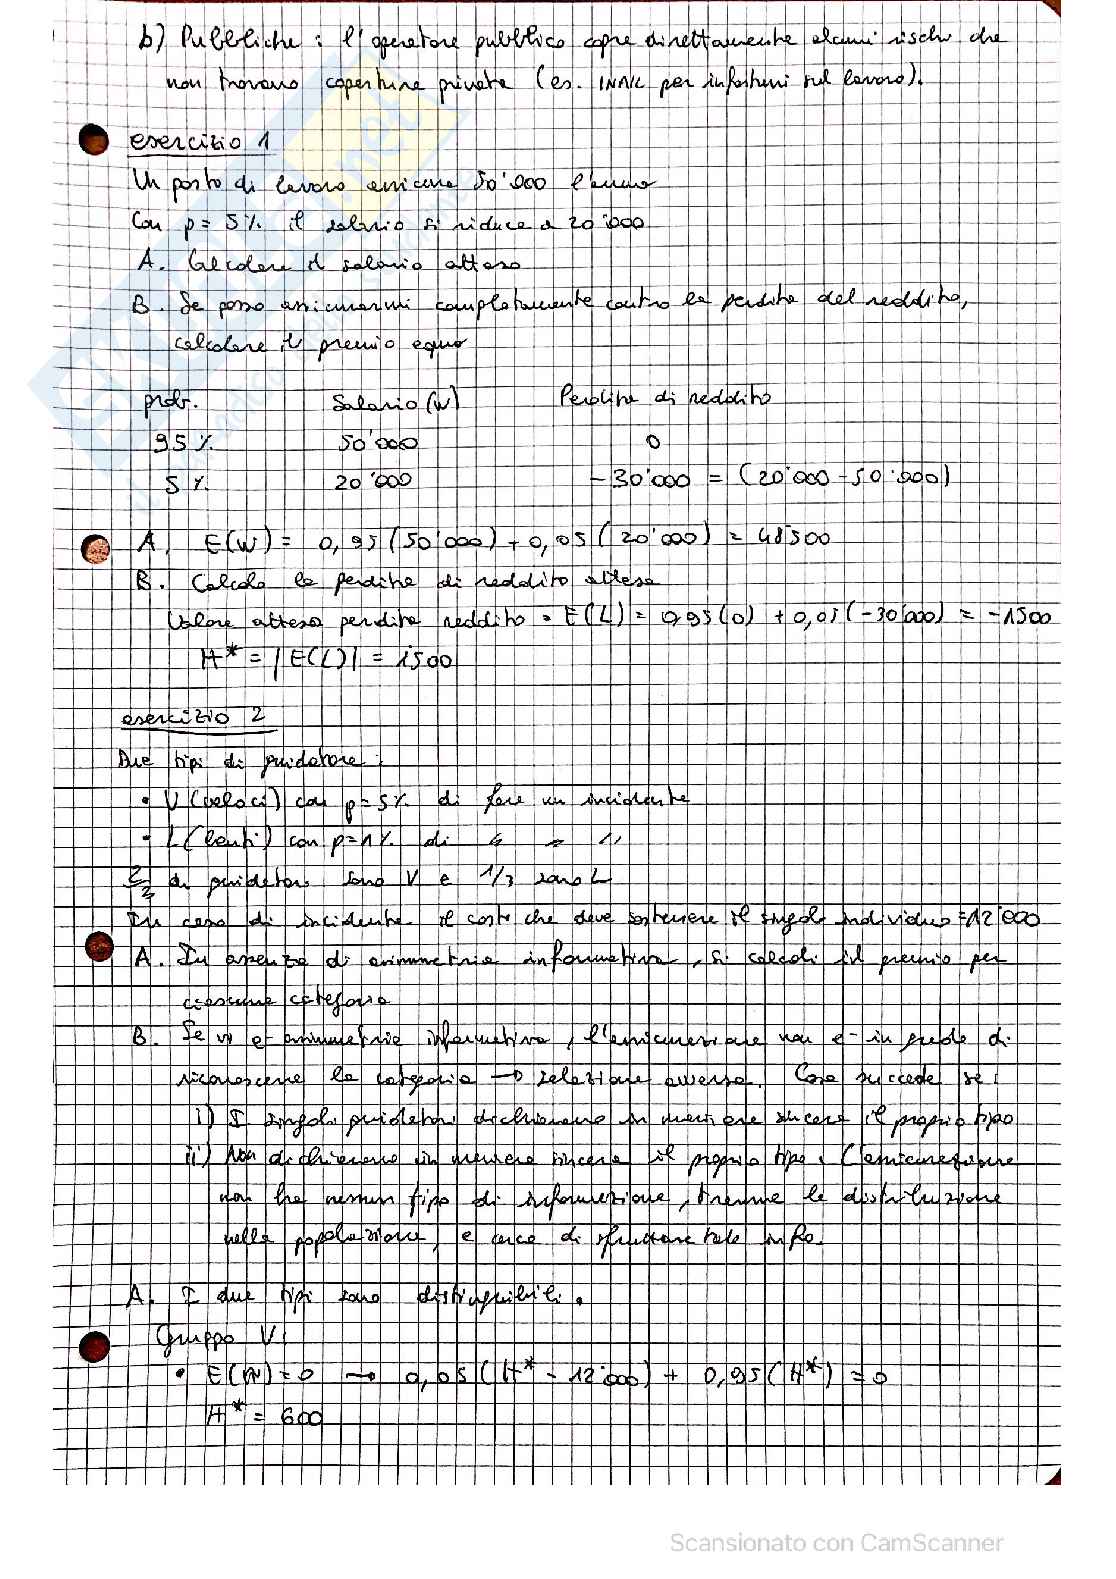 b) Pubbliche : l'operatore pubblico copre direttamente alcuni rischi che
non trovano coperture private (es. INAIL per infortuni sul lavoro).
esercizio 1
Un posto di lavoro assicura 50'000 l'anno
Con p = 5% il salario si riduce a 20'000
A. Calcolare il salario atteso
B. Se posso assicurarmi completamente contro la perdita del reddito,
calcolare il premio equo
prob. Salario (W) Perdita di reddito
95% 50'000 0
5% 20'000 -30'000 = (20'000 - 50'000)
A. E(W) = 0,95 (50'000) + 0,05 (20'000) = 48500
B. Calcolo la perdita di reddito attesa
Valore atteso perdita reddito = E(L) = 0,95(0) + 0,05(-30'000) = -1500
H* = |E(L)| = 1500
esercizio 2
Due tipi di guidatore :
• V (veloci) con p = 5% di fare un incidente
• L (lenti) con p = 1% di " " "
2/3 di guidatori sono V e 1/3 sono L
In caso di incidente il costo che deve sostenere il singolo individuo = 12'000
A. In assenza di asimmetria informativa, si calcoli il premio per
ciascuna categoria
B. Se vi è asimmetria informativa, l'assicurazione non è in grado di
riconoscere la categoria → selezione avversa. Cosa succede se :
i) I singoli guidatori dichiarano in maniera sincera il proprio tipo
ii) Non dichiarano in maniera sincera il proprio tipo. L'assicurazione
non ha nessun tipo di informazione, tranne la distribuzione
nella popolazione, e cerca di sfruttare tale info.
A. I due tipi sono distinguibili.
Gruppo V:
• E(π) = 0 → 0,05 (H* - 12'000) + 0,95 (H*) = 0
H* = 600
Scansionato con CamScanner